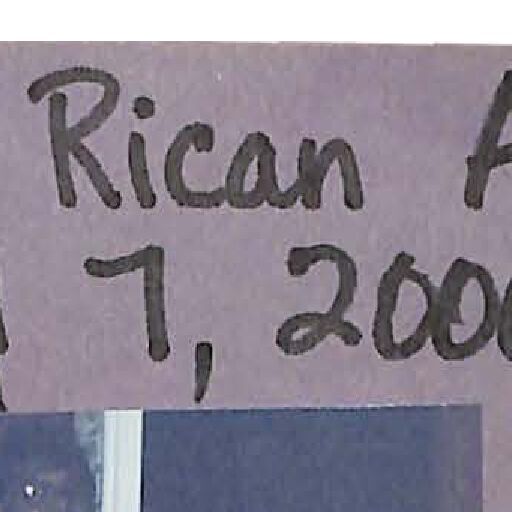 Rican
7, 200